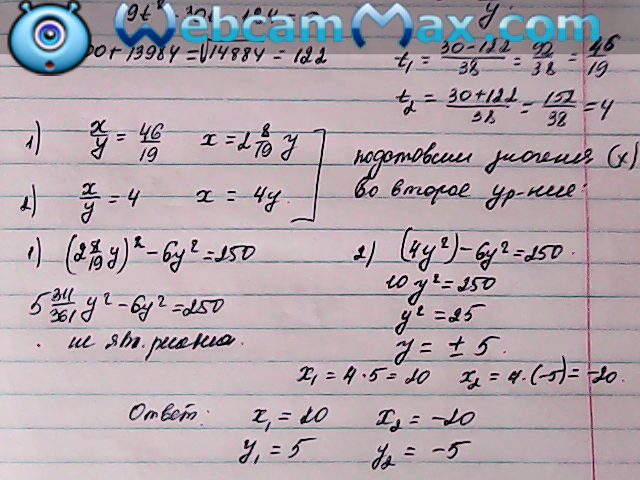 WebcamMax.com
00 + 13984 = √14884 = 122
t₁ = (30-122)/38 = 92/38 = 46/19
t₂ = (30+122)/38 = 152/38 = 4
1) x/y = 46/19 x = 2 8/19 y
2) x/y = 4 x = 4y
подставим значения (x)
во второе ур-ние:
1) (2 8/19 y)² - 6y² = 250
5 311/361 y² - 6y² = 250
не явл.
2) (4y²) - 6y² = 250
10y² = 250
y² = 25
y = ± 5.
x₁ = 4·5 = 20 x₂ = 4·(-5) = -20.
Ответ: x₁ = 20 x₂ = -20
y₁ = 5 y₂ = -5